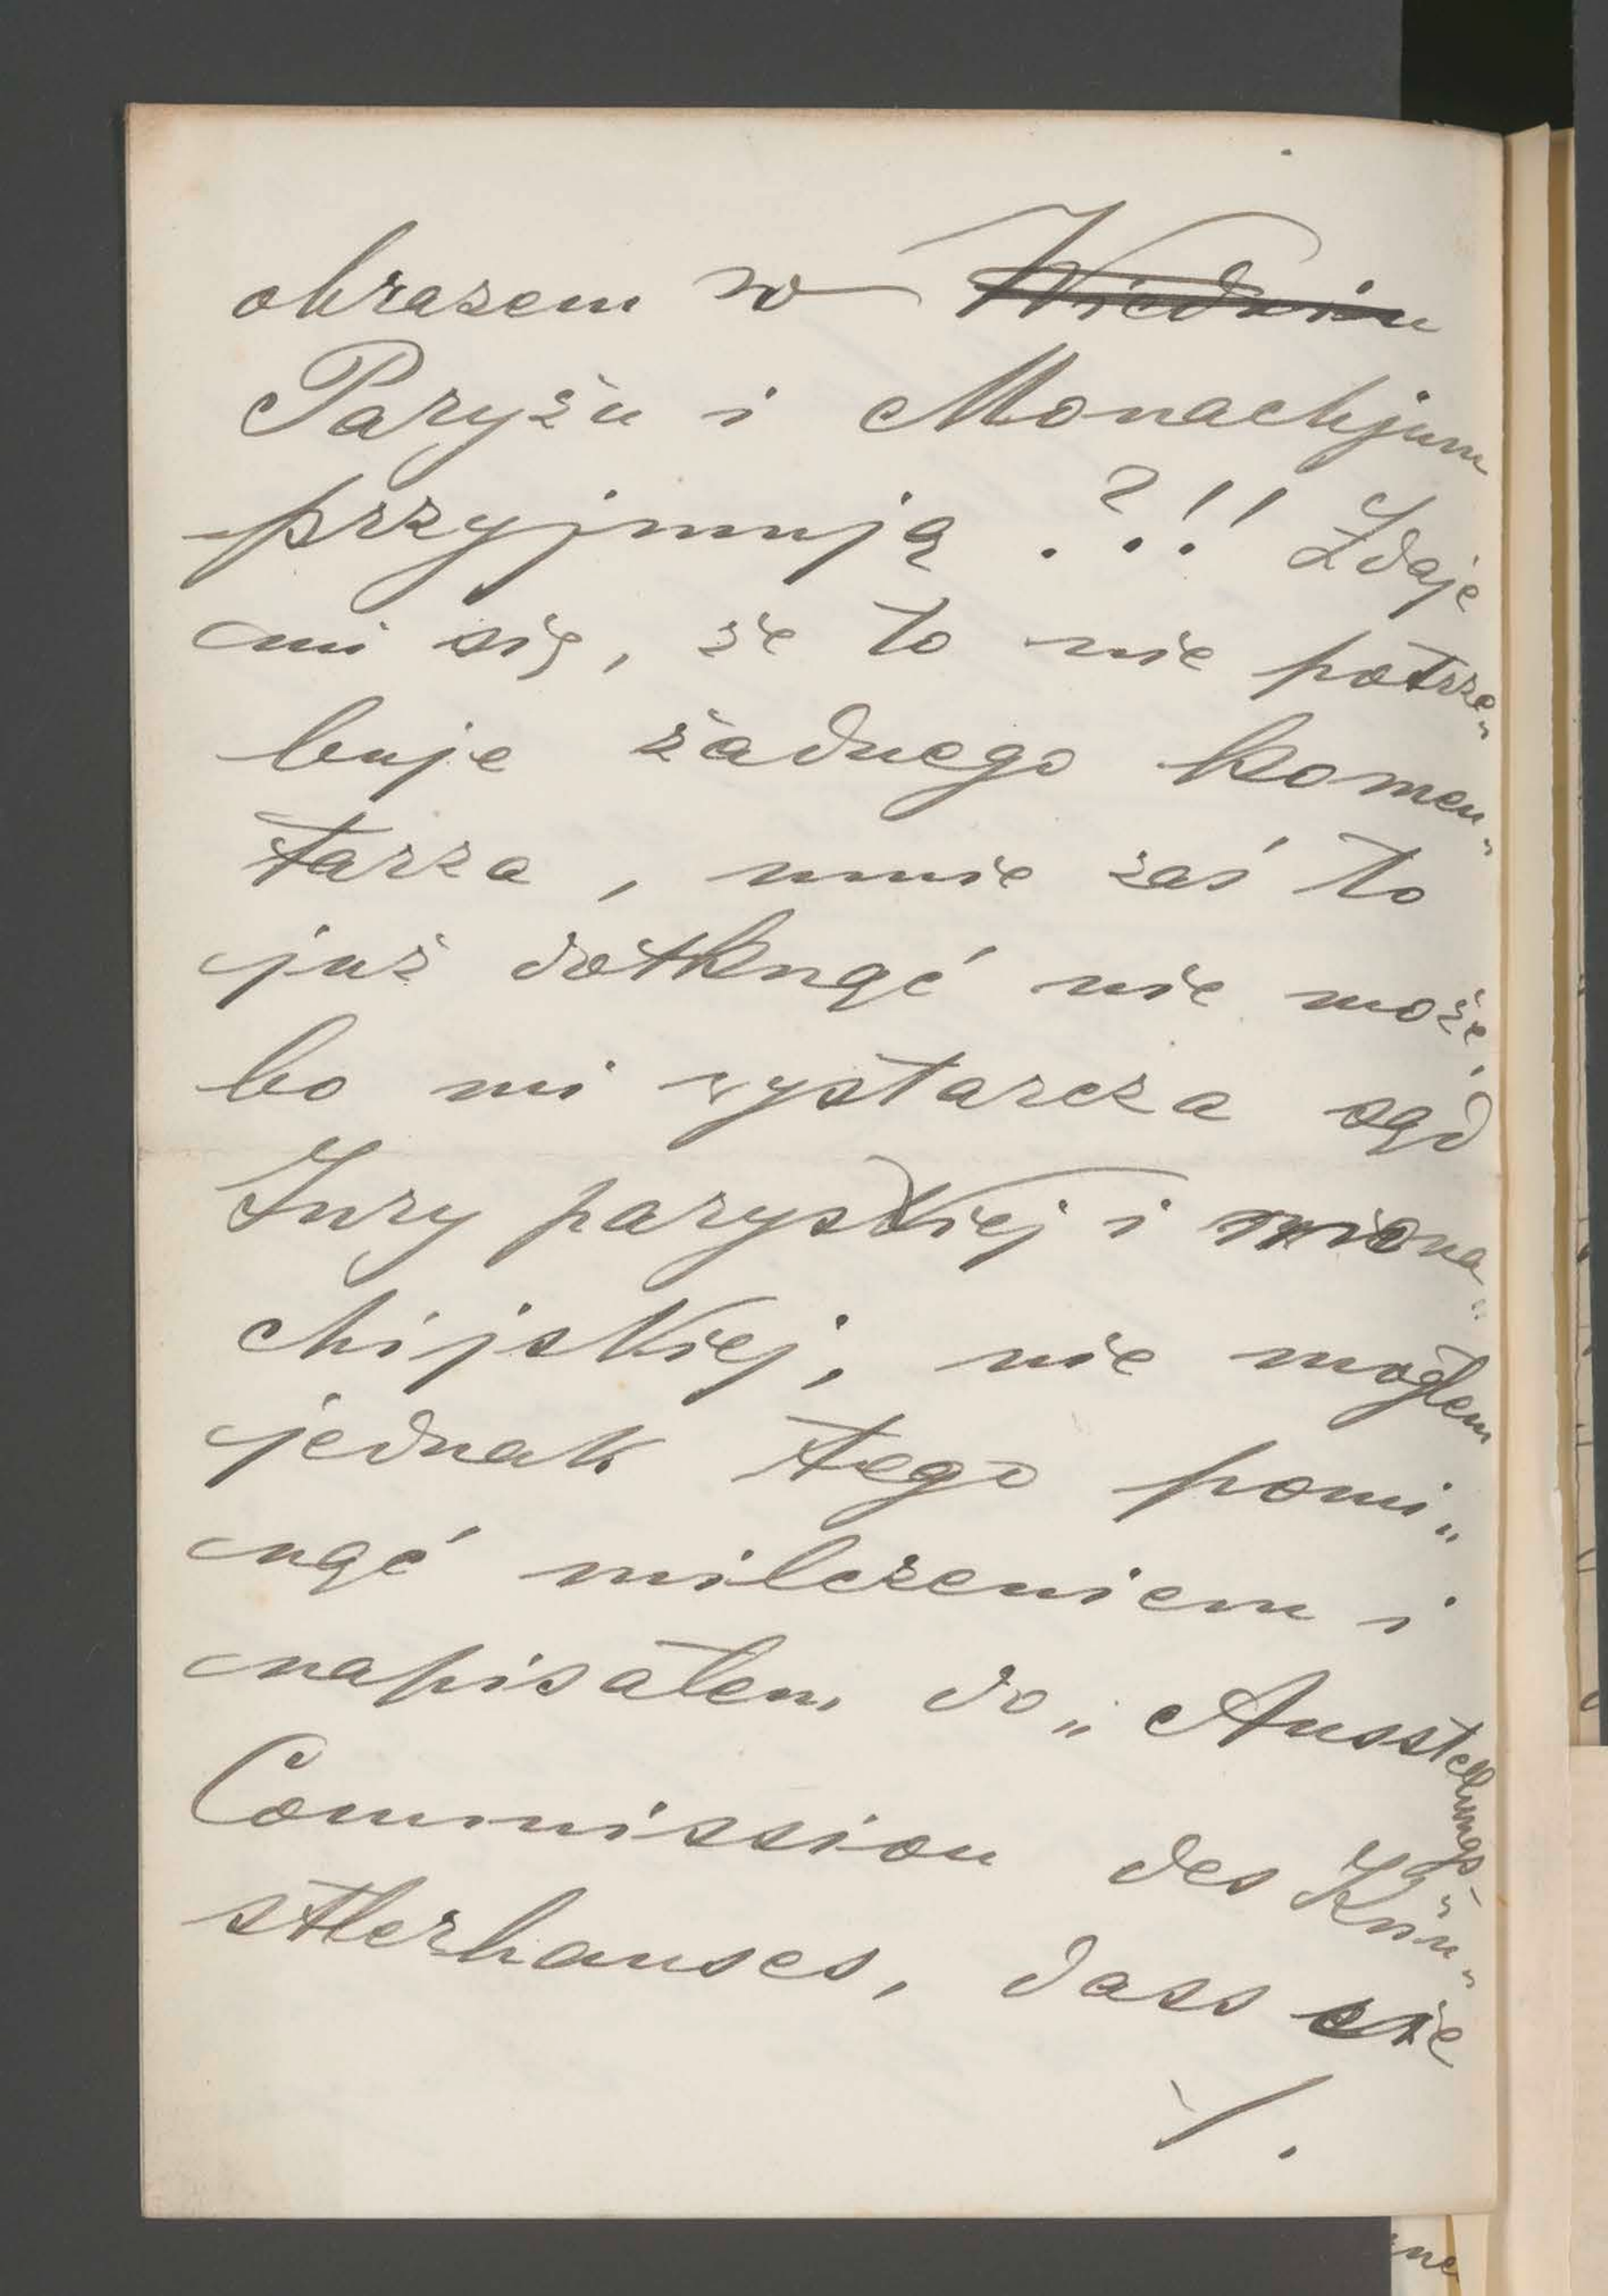 obrazem w Wiedniu
Paryżu i Monachjum
przyjmują ?!! Zdaje
mi się, że to nie potrze„
buje żadnego komen„
tarza, mnie zaś to
już dotknąć nie może,
bo mi wystarcza sąd
Jury paryskiej i mona„
chijskiej, nie mogłem
jednak tego pomi„
nąć milczeniem i
napisałem do „Ausstellungs-
Commission des Kün„
stlerhauses, dass sie
/.